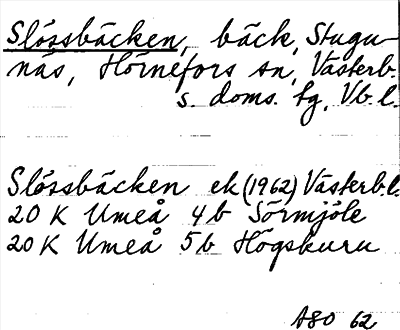 Slössbäcken, bäck, Stugu-
näs, Hörnefors sn, Västerb.
s. doms. tg, Vb. l.
Slössbäcken ek (1962) Västerb.l.
20 K Umeå 4b Sörmjöle
20 K Umeå 5b Högskuru
A80 62